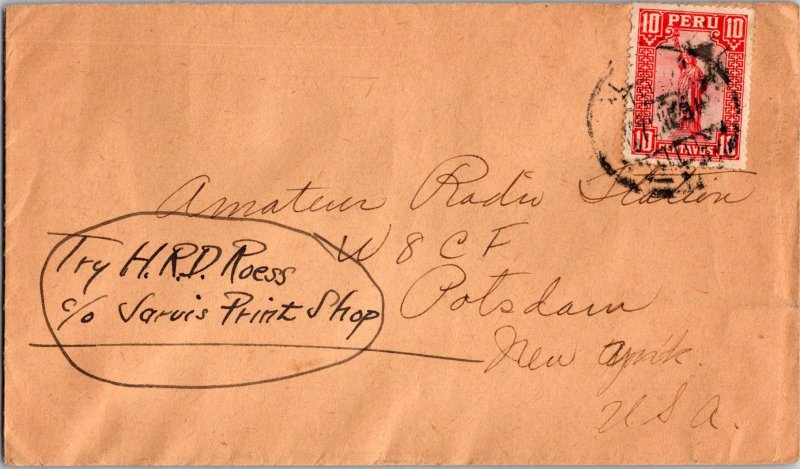 10 PERÚ 10
10 CENTAVOS 10
Amateur Radio Station
W8CF
Potsdam
New York.
U.S.A.
Try H.R.D. Roess
c/o Jarvis Print Shop